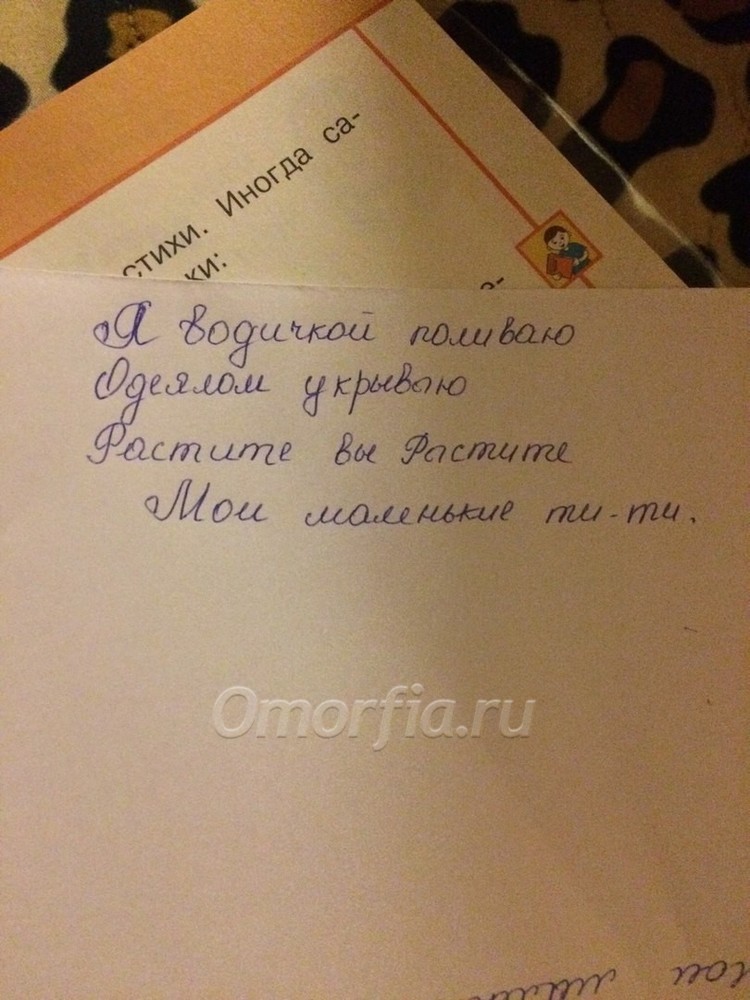 стихи. Иногда са-
ки:
Я водичкой поливаю
Одеялом укрываю
Растите вы Растите
Мои маленькие ти-ти.
Omorfia.ru